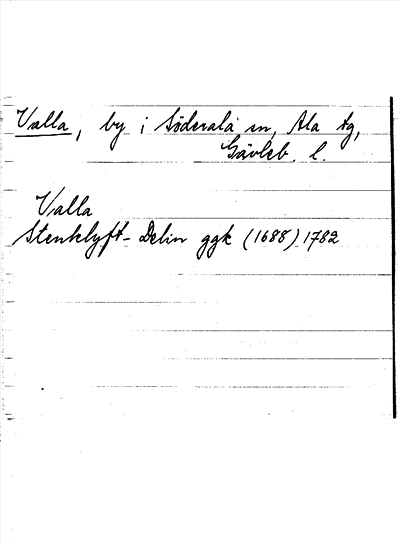 Valla, by i Söderala sn, Ala tg,
Gävleb. l.
Valla
Stenklyft- Delin ggk (1688) 1782